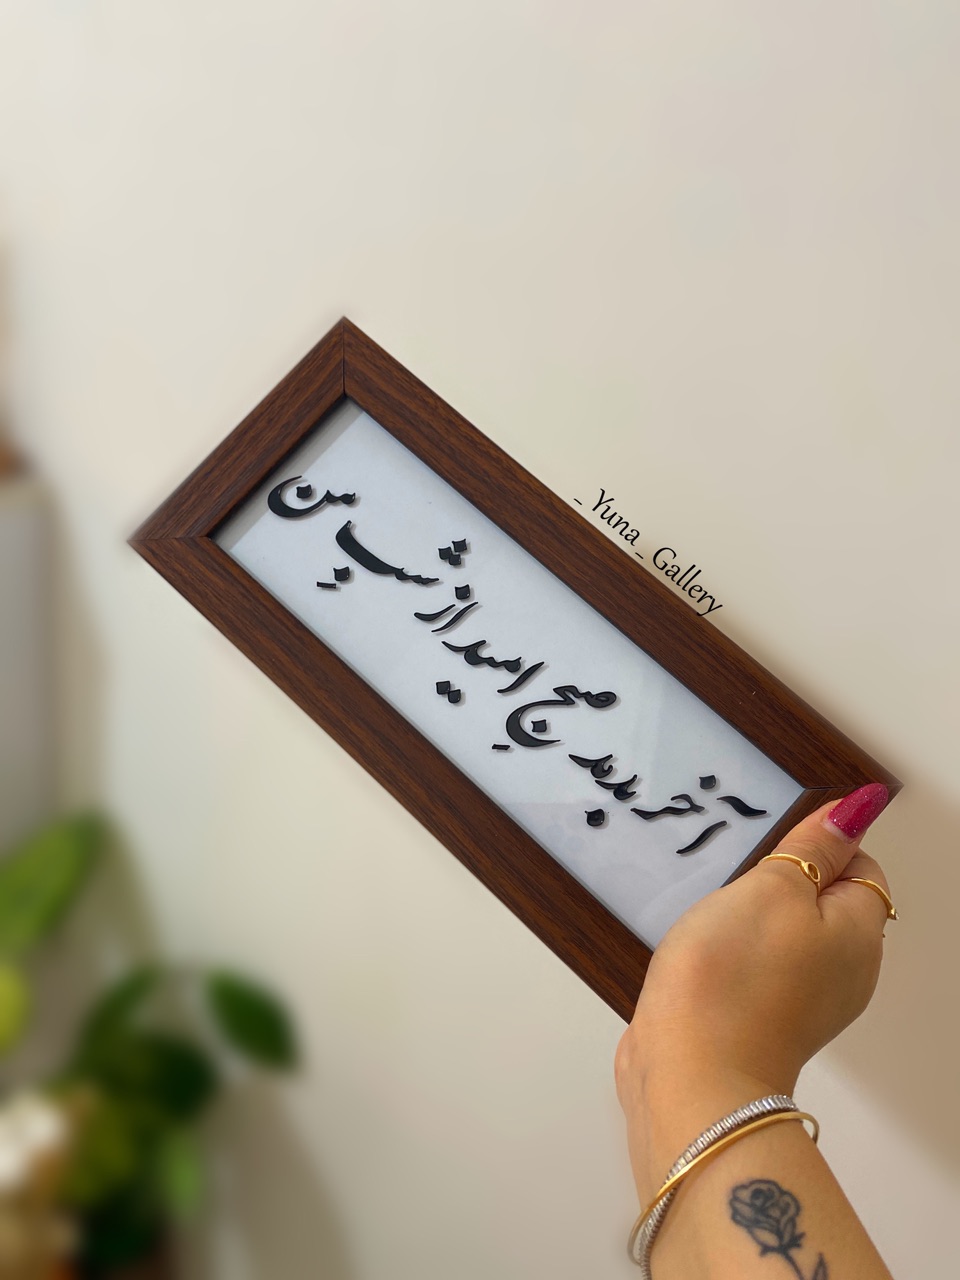 آخر بدمد صبح امید از شب من
_ Yuna _ Gallery